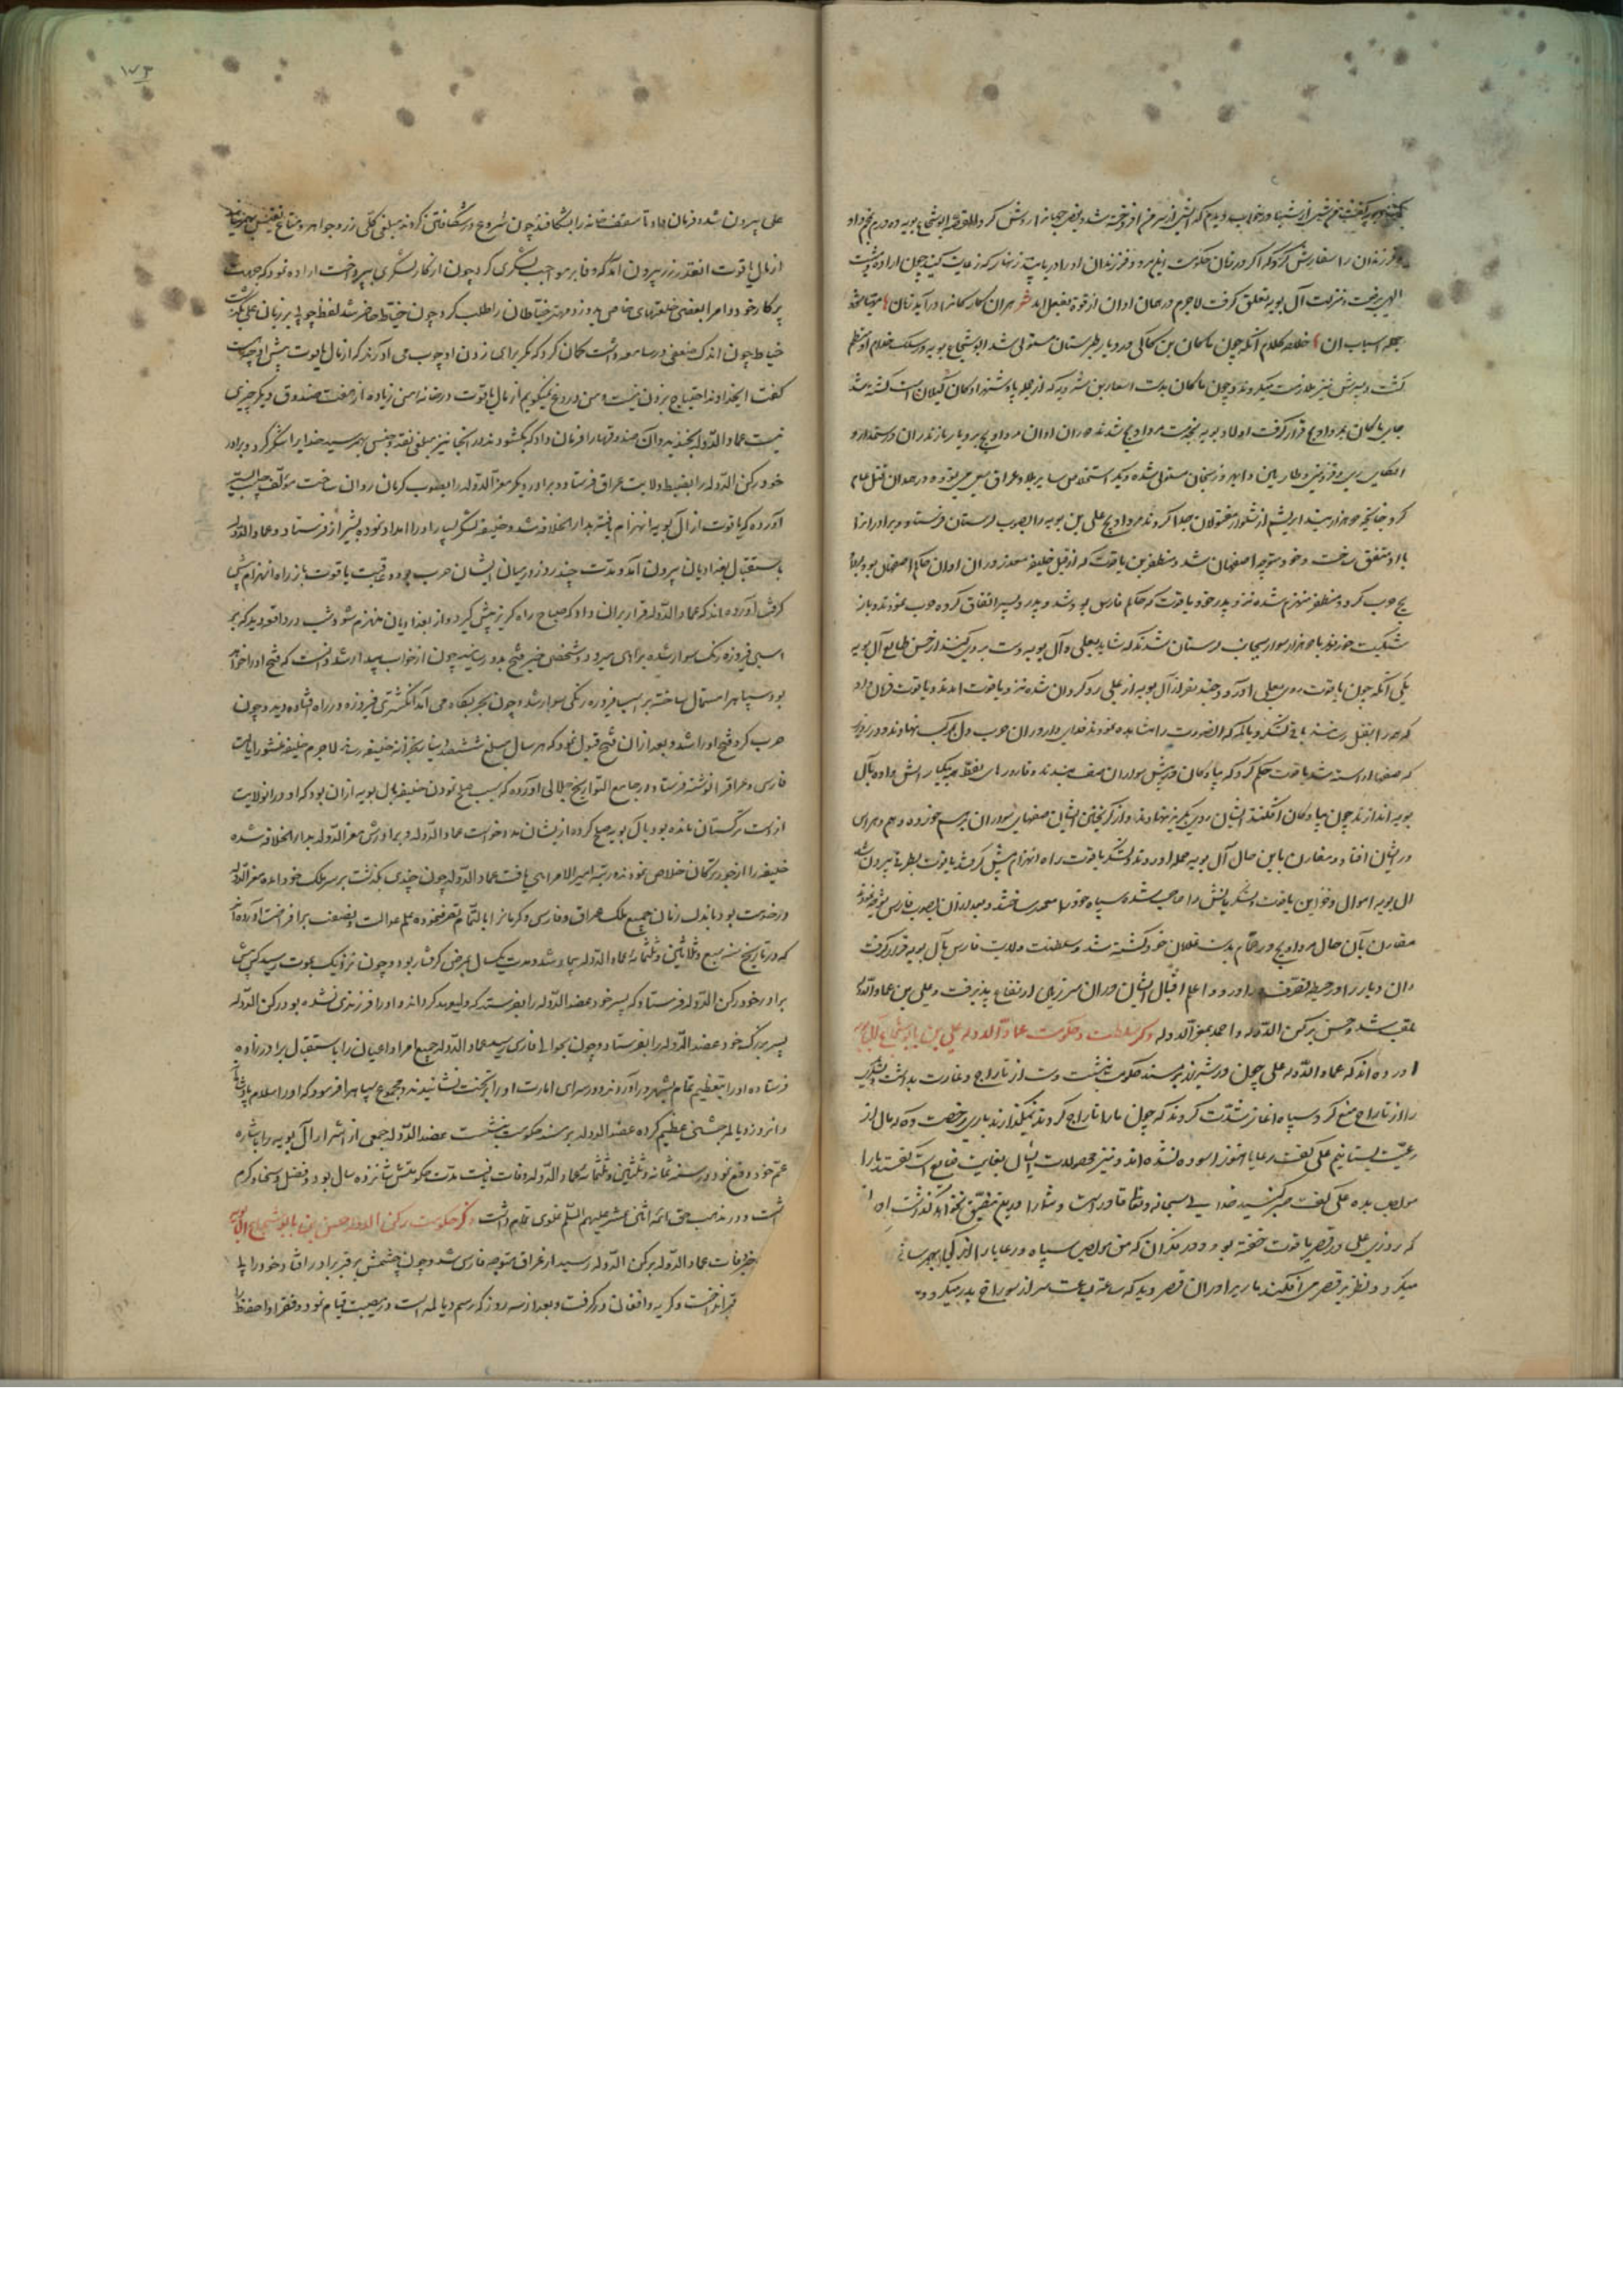 شبی از شبها در خواب دیدم که آتشی از سر من افروخته شد و بعضی جهانرا روشن کرد القصه ابوشجاع بویه ده درم بمنجم داد
و فرزندان را سفارش کرد که اگر در زمان حکومت ابلغ مرد و فرزندان او را دریابید زنهار که رعایت کنید چون اراده و مشیت
الهی برفعت و منزلت آل بویه تعلق گرفت لاجرم در همان اوان از قوه بفعل آمد شعر هران کار کانرا در آید زمان مهیا شود
جمله اسباب ان خلاصه کلام آنکه چون ماکان بن کاکی در دیار طبرستان مستولی شد ابوشجاع بویه در سلک خدام او منتظم
گشت و پسرش نیز ملازمت میکردند و چون ماکان بدست اسفار بن شیرویه که از جمله پادشهزادکان گیلان است کشته شد
جای ماکان بمرداویج قرار گرفت اولاد بویه بخدمت مرداویج شدند در ان اوان مرداویج بر دیار مازندران و رستمدار و
ری و قزوین و طارمین و ابهر و زنجان مستولی شده دیگر استخلاص سایر بلاد عراق همدان قتل عام
کرد چنانچه دو هزار بند ابریشم از شلوار مقتولان جدا کردند مرداویج علی بن بویه را بصوب لرستان فرستاد و برادرانرا
با او متفق ساخت و خود متوجه اصفهان شد و مظفر بن یاقوت که از قبل خلیفه معتز در ان اوان حاکم اصفهان بود
حرب کرد و مظفر منهزم شده نزد پدر خود یاقوت که حاکم فارس بود شد و پدر و پسر اتفاق کرده حرب نمودند و باز
شکست خوردند با دو هزار سوار بجانب لرستان شدند که شاید بعلی و آل بویه دست برد کنند از حسن طالع آل بویه
یکی آنکه چون یاقوت روی بعلی آورد و چند نفر از آل بویه از علی رو گردان شده نزد یاقوت امدند و یاقوت فرمان داد
که همه را بقتل رسانند باقی لشکر دیالمه که الضرورت را مشاهده نمودند دران حرب دل بر مرک نهادند و در روزی
که صفها اراسته شد یاقوت حکم کرد که پیادکان در پیش سواران صف بندند و قارورهای نفط بیکبار آتش داده بآل
بویه اندازند چون پیادکان افکندند ایشان روی بگریز نهادند و از گریختن ایشان صفهای سواران برهم خورده وهم و هراس
در ایشان افتاد و مقارن باین حال آل بویه حمله اوردند و لشکر یاقوت راه انهزام پیش گرفت یاقوت بطرفی بیرون شد
ال بویه اموال و خزاین یاقوت و لشکریانش را صاحب شده سپاه خود را معمور ساختند و بعد از ان بصوب فارس متوجه شدند
مقارن بآن حال مرداویج در حمام بدست غلامان خود کشته شد و سلطنت ولایت فارس بآل بویه قرار گرفت
و ان دیار را در حیطه تصرف در اورد و اعلام اقبال ایشان در ان سرزمین ارتفاع پذیرفت و علی بن عماد الدوله
ملقب شد و حسن برکن الدوله و احمد بمعز الدوله ذکر سلطنت و حکومت عماد الدوله علی بن ابوشجاع آل بویه
اورده اند که عماد الدوله علی چون در شیراز بر مسند حکومت بنشست دست از تاراج و غارت بداشت و لشکر
را از تاراج منع کرد و سپاه اغاز شدت کردند که چون ما را تاراج کردن نمیگذارند باری رخصت ده که مال از
رعیت بستانیم علی گفت رعایا هنوز اسوده نشده اند و نیز محصولات ایشان بغایت ضایع است گفتند ما را
مواجب بده علی گفت صبر کنید خدای سبحانه و تعالی قادر است و شما را در مضیق نخواهد گذاشت
که روزی علی در قصر یاقوت خفته بود و در فکر ان که من مواجب سپاه و رعایا را از کجا بهم رسانم
میکرد و نظر بر قصر می افکند ماریرا در ان قصر دید که ساعت بساعت سر از سوراخ بدر میکرد
علی بیرون شد و فرمان داد تا سقف خانه را بشکافند چون شروع در شکافتن کردند مبلغی کلی زر و جواهر و متاع نفیس بهم رسید
از مال یاقوت انقدر زر بیرون آمد که وفا بر مواجب لشکری کرد چون از کار لشکری بپرداخت اراده نمود که بجهت
پرکار خود و امرا بعضی خلعتهای خاص بدوزد مهتر خیاطان را طلب کرد چون خیاط حاضر شد لفظ چوبی بر زبان علی گذشت
خیاط چون اندک ضعفی در سامعه داشت گمان کرد که مگر برای زدن او چوب می آورند که از مال یاقوت پیش او چیزیست
گفت ایخداوند احتیاج بزدن نیست و من دروغ نمیگویم از مال یاقوت در خانه من زیاده از هفت صندوق دیگر چیزی
نیست عماد الدوله بخندید و آن صندوقها را فرمان داد که بگشودند در آنجا نیز مبلغی نقد و جنس بهم رسید خدایرا شکر کرد و برادر
خود رکن الدوله را بضبط ولایت عراق فرستاد و برادر دیگر معز الدوله را بصوب کرمان روان ساخت مؤلف حبیب السیر
آورده که یاقوت از آل بویه انهزام یافته بدار الخلافه شد و خلیفه لشکر بسیار او را امداد نموده بشیراز فرستاد و عماد الدوله
باستقبال بغدادیان بیرون آمد و مدت چند روز در میان ایشان حرب بود و عاقبت یاقوت باز راه انهزام پیش
گرفت آورده اند که عماد الدوله قرار بر ان داد که صباح راه گریز پیش گیرد و از بغدادیان منهزم شود شب در واقعه دید که بر
اسبی فیروزه رنگ سوار شده براهی میرود و شخصی خبر فتح بدو رسانید چون از خواب بیدار شد دانست که فتح او را خواهد
بود سپاهرا مستمال ساخته بر اسب فیروزه رنگی سوار شد و چون بحربگاه می آمد انگشتری فیروزه در راه افتاده دید و چون
حرب کرد فتح او را شد و بعد از ان فتح قبول نمود که هر سال مبلغ ششصد هزار دینار بخزانه خلیفه رساند لاجرم خلیفه منشور ایالت
فارس و عراق را نوشته فرستاد و در جامع التواریخ جلالی آورده که سبب صلح نمودن خلیفه بآل بویه ازان بود که او در انولایت
از دست ترکستان مانده بود بآل بویه صلح کرده از ایشان مدد خواست عماد الدوله و برادرش معز الدوله بدار الخلافه شده
خلیفه را از جور ترکمان خلاص نموده و رتبه امیر الامرایی یافت عماد الدوله چون چندی بگذشت بر سر ملک خود آمده معز الدوله
در خدمت بود باندک زمان جمیع ملک عراق و فارس و کرمانرا بالتمام تصرف نموده علم عدالت و نصفت بر افراخت آورده اند
که در تاریخ سنه سبع و ثلاثین و ثلثمائه عماد الدوله بیمار شد و مدت یکسال بمرض گرفتار بود و چون نزدیک بموت رسید کس پیش
برادر خود رکن الدوله فرستاد که پسر خود عضد الدوله را بفرستد که ولیعهد گرداند و او را فرزندی نشده بود رکن الدوله
پسر بزرگ خود عضد الدوله را بفرستاد و چون بحوالی فارس رسید عماد الدوله جمیع امرا و اعیان را باستقبال برادرزاده
فرستاده او را بتعظیم تمام بشهر در آوردند و در سرای امارت او را بر تخت نشانیدند و مجموع سپاهرا فرمود که او را سلام پادشاهی
و انروز دیالمه جشنی عظیم کرده عضد الدوله بر مسند حکومت بنشست عضد الدوله جمعی از اشرار آل بویه را باشاره
عم خود دفع نمود و در سنه ثمانه و ثلثین و ثلثمائه عماد الدوله وفات یافت مدت حکومتش شانزده سال بود و فضل و سخا و کرم
داشت و در مذهب حق ائمه اثنی عشر علیهم السلام غلوی تمام داشت ذکر حکومت رکن الدوله حسن بن ابوشجاع آل بویه
خبر وفات عماد الدوله برکن الدوله رسید از عراق متوجه فارس شد و چون چشمش بر قبر برادر افتاد خود را پیاده
قبر انداخت و گریه و افغان در گرفت و بعد از سه روز که رسم دیالمه است در مصیبت قیام نمود و فقرا و حفاظ